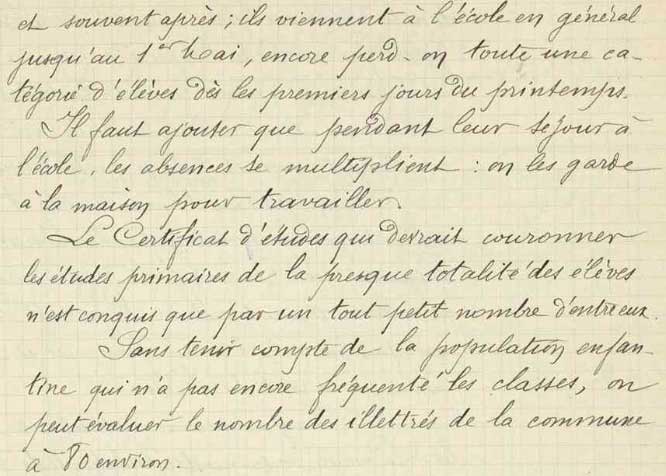 et souvent après ; ils viennent à l'école en général
jusqu'au 1er Mai, encore perd-on toute une ca-
tégorie d'élèves dès les premiers jours du printemps.
Il faut ajouter que pendant leur séjour à
l'école, les absences se multiplient : on les garde
à la maison pour travailler.
Le Certificat d'études qui devrait couronner
les études primaires de la presque totalité des élèves
n'est conquis que par un tout petit nombre d'entre eux.
Sans tenir compte de la population enfan-
tine qui n'a pas encore fréquenté les classes, on
peut évaluer le nombre des illettrés de la commune
à 80 environ.